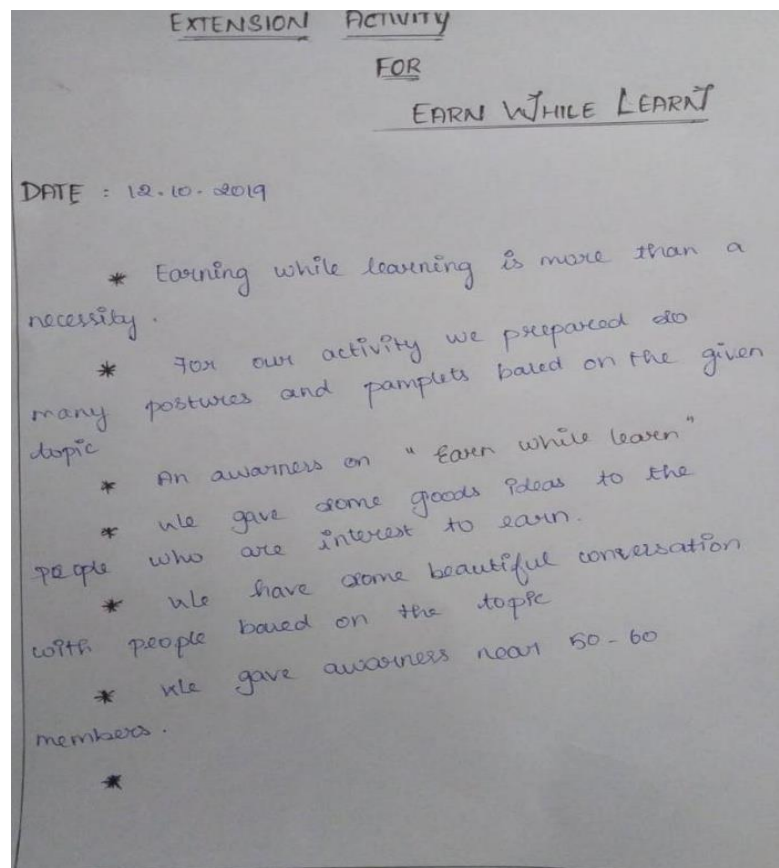 EXTENSION ACTIVITY
FOR
EARN WHILE LEARN
DATE : 12.10.2019
* Earning while learning is more than a
necessity.
* For our activity we prepared so
many postures and pamplets based on the given
topic
* An awarness on "Earn while learn"
* We gave some goods ideas to the
people who are interest to earn.
* We have some beautiful conversation
with people based on the topic
* We gave awarness near 50-60
members.
*